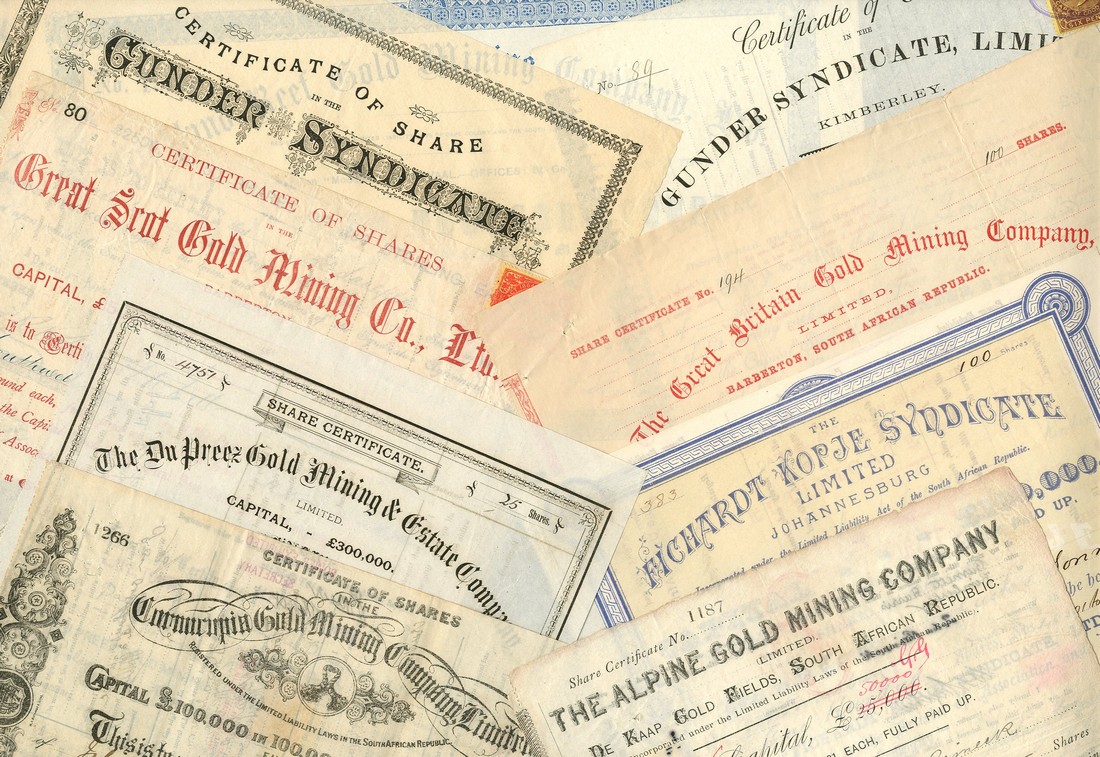 CERTIFICATE OF SHARE
IN THE
GUNDER SYNDICATE
No. 89
Certificate of
IN THE
GUNDER SYNDICATE, LIMIT
KIMBERLEY.
80
CERTIFICATE OF SHARES
IN THE
Great Scot Gold Mining Co., Ltd.
CAPITAL, £
is to Certi
ound each,
the Capi
Assoc
at £
100 SHARES.
SHARE CERTIFICATE No. 194
The Great Britain Gold Mining Company,
LIMITED,
BARBERTON, SOUTH AFRICAN REPUBLIC.
No. 14757
SHARE CERTIFICATE.
25 Shares.
The Du Preez Gold Mining & Estate Comp
LIMITED.
CAPITAL, - £300,000.
100 Shares
383
THE
FICHARDT KOPJE SYNDICATE
LIMITED
JOHANNESBURG
Incorporated under the Limited Liability Act of the South African Republic.
1266
CERTIFICATE OF SHARES
IN THE
Gold Mining Company Limite
REGISTERED UNDER THE LIMITED LIABILITY LAWS IN THE SOUTH AFRICAN REPUBLIC
CAPITAL £100,000 IN 100,00
This is to
Share Certificate No. 1187
THE ALPINE GOLD MINING COMPANY
(LIMITED)
DE KAAP GOLD FIELDS, SOUTH AFRICAN REPUBLIC.
incorporated under the Limited Liability Laws of the South African Republic.
50000
Capital, £
EACH, FULLY PAID UP.
Shares